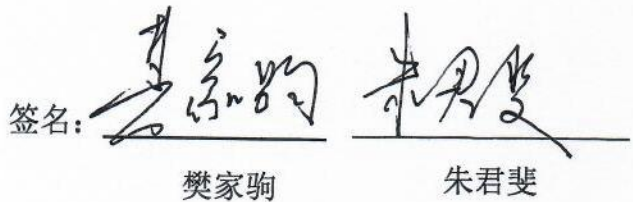 签名：樊家驹 朱君斐
樊家驹 朱君斐